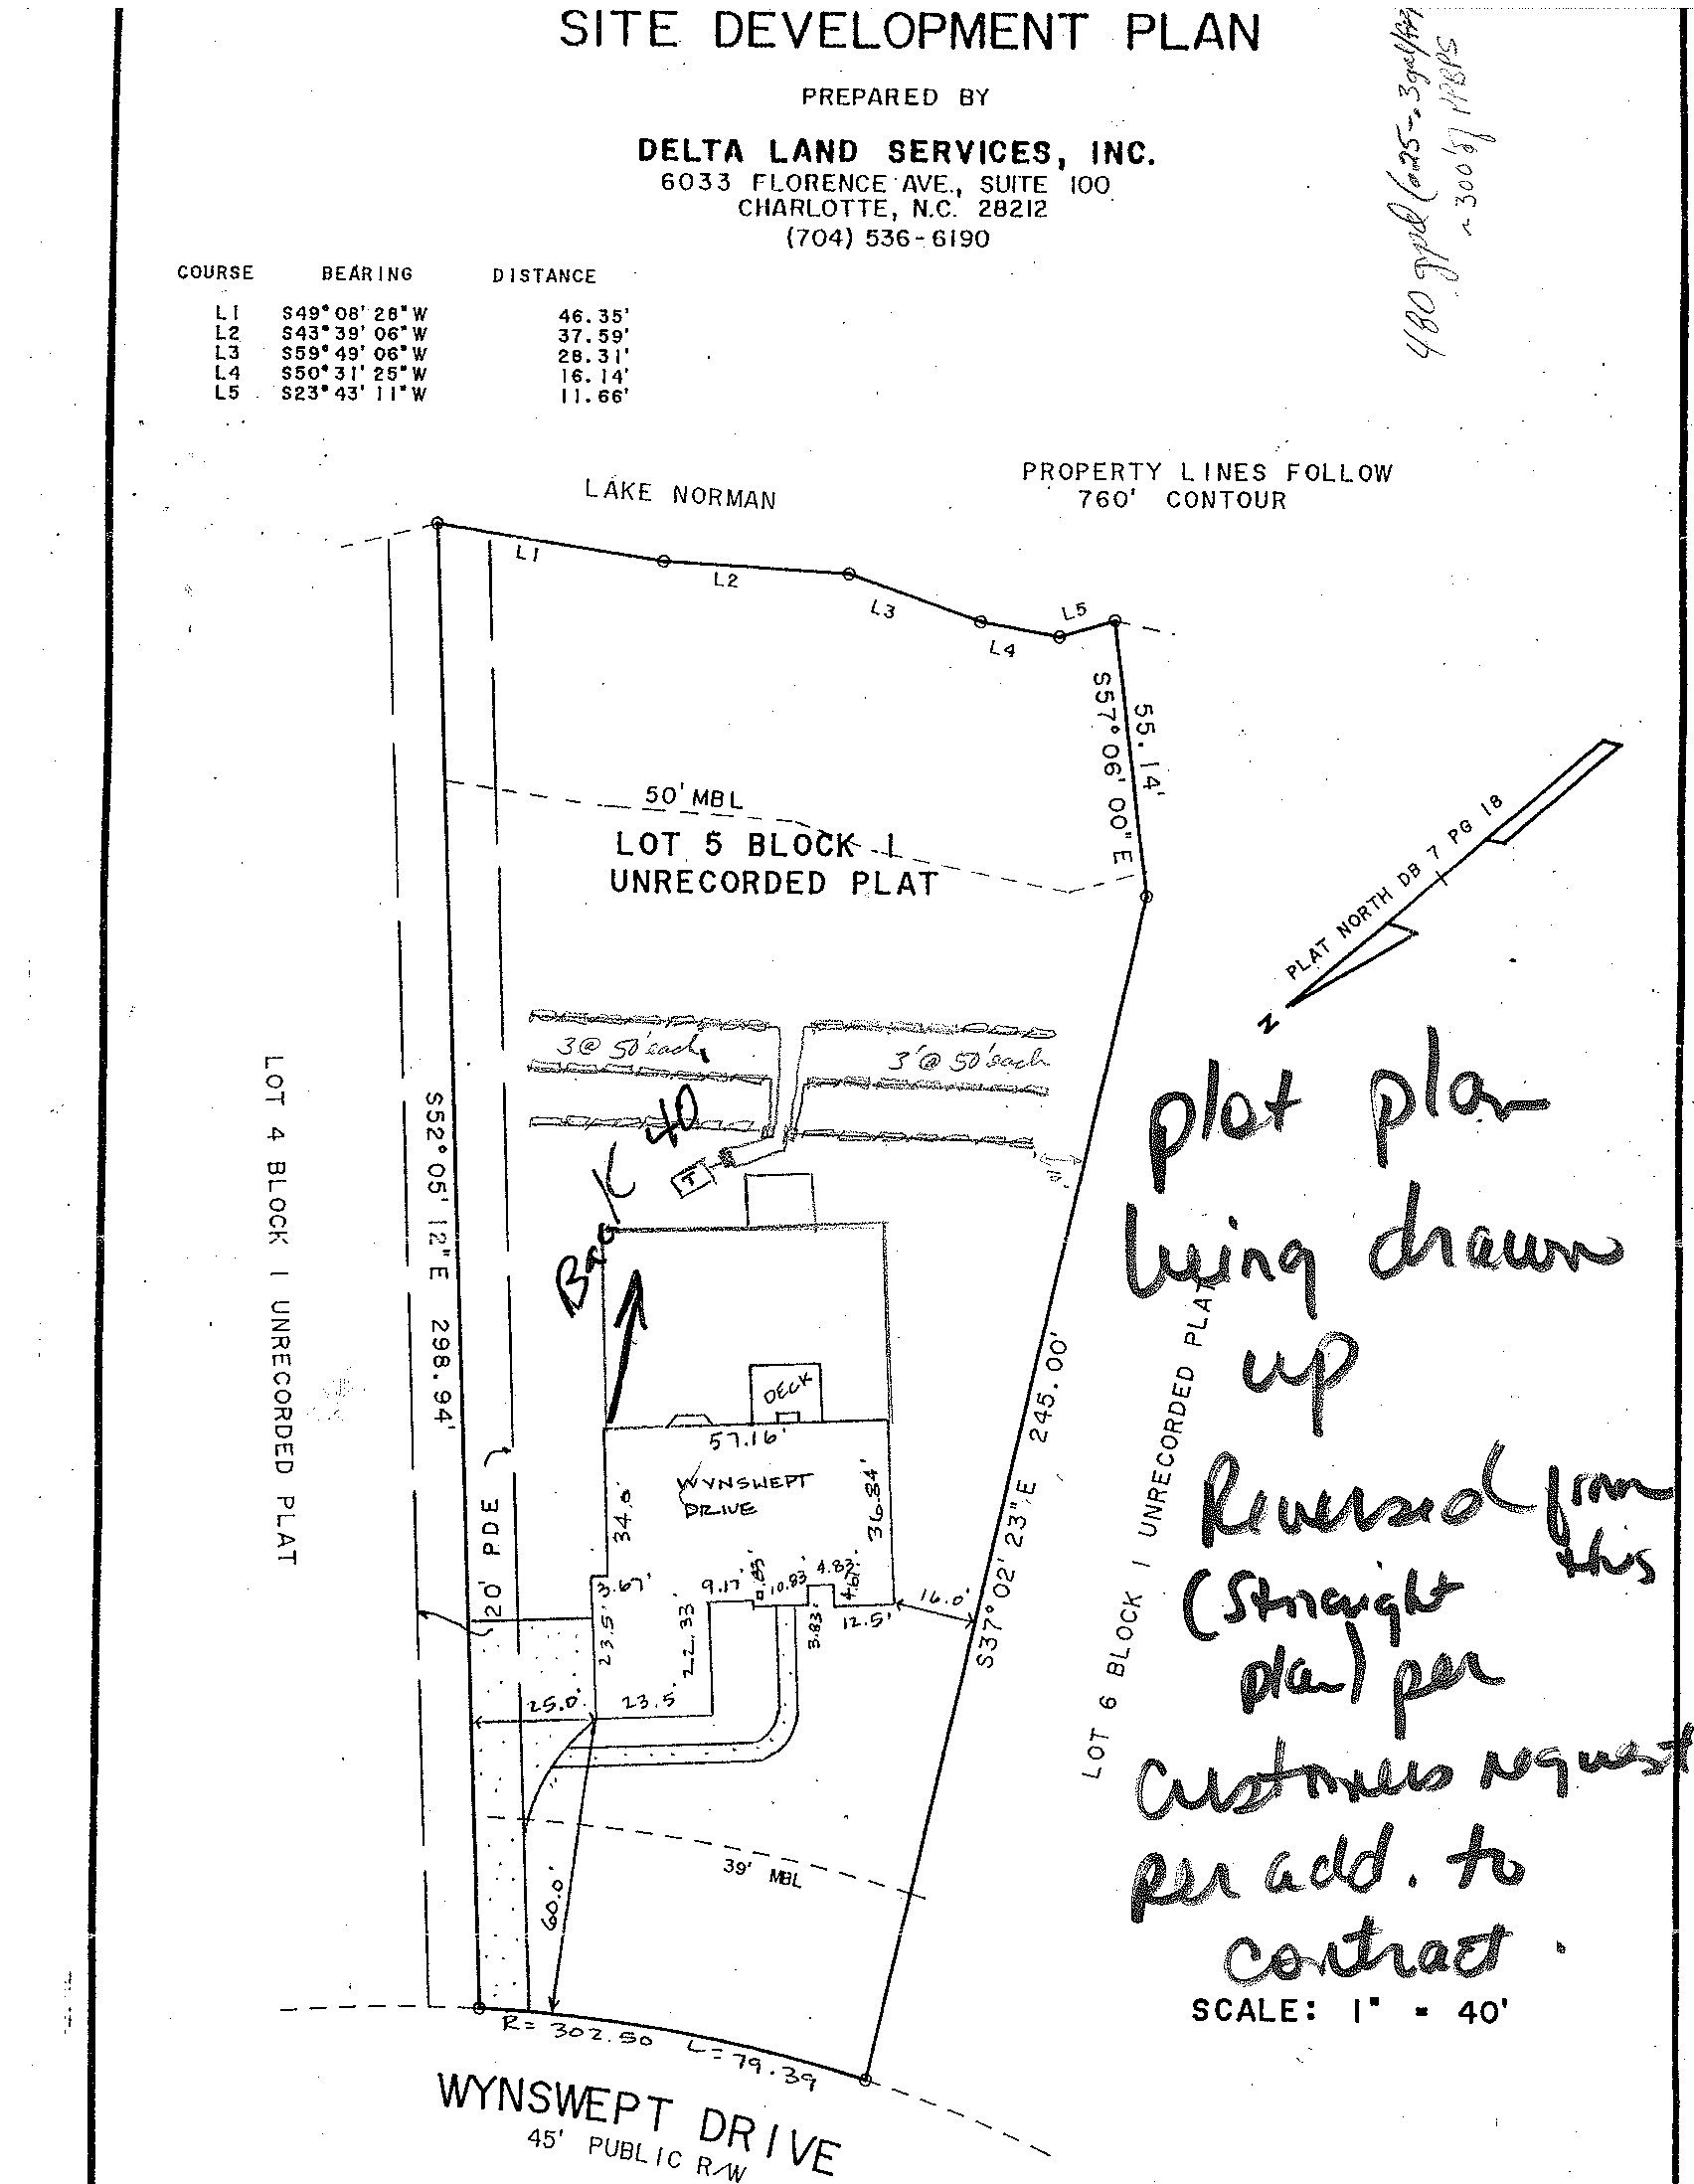 SITE DEVELOPMENT PLAN
PREPARED BY
DELTA LAND SERVICES, INC.
6033 FLORENCE AVE., SUITE 100
CHARLOTTE, N.C. 28212
(704) 536-6190
480 gpd (.025-.3gal/
~300' of PPBPS
COURSE BEARING DISTANCE
L1 S49°08'28"W 46.35'
L2 S43°39'06"W 37.59'
L3 S59°49'06"W 28.31'
L4 S50°31'25"W 16.14'
L5 S23°43'11"W 11.66'
LAKE NORMAN
PROPERTY LINES FOLLOW
760' CONTOUR
L1
L2
L3
L4
L5
S57°06'00"E
55.14'
50' MBL
LOT 5 BLOCK 1
UNRECORDED PLAT
PLAT NORTH DB 7 PG 18
N
3@ 50' each
3'@ 50' each
T
10'
Back 40
LOT 4 BLOCK 1 UNRECORDED PLAT
S52°05'12"E 298.94'
20' PDE
DECK
57.16'
WYNSWEPT
DRIVE
34.0'
36.84'
3.67'
23.5'
22.33'
9.17'
.83'
10.83'
4.83'
4.67'
3.83'
12.5'
16.0'
25.0'
23.5'
S37°02'23"E 245.00'
LOT 6 BLOCK 1 UNRECORDED PLAT
39' MBL
60.0'
plot plan
being drawn
up
Reversed from
this
(Straight
plan) per
Customers request
per add. to
contract.
SCALE: 1" = 40'
R= 302.50 L=79.39
WYNSWEPT DRIVE
45' PUBLIC R/W